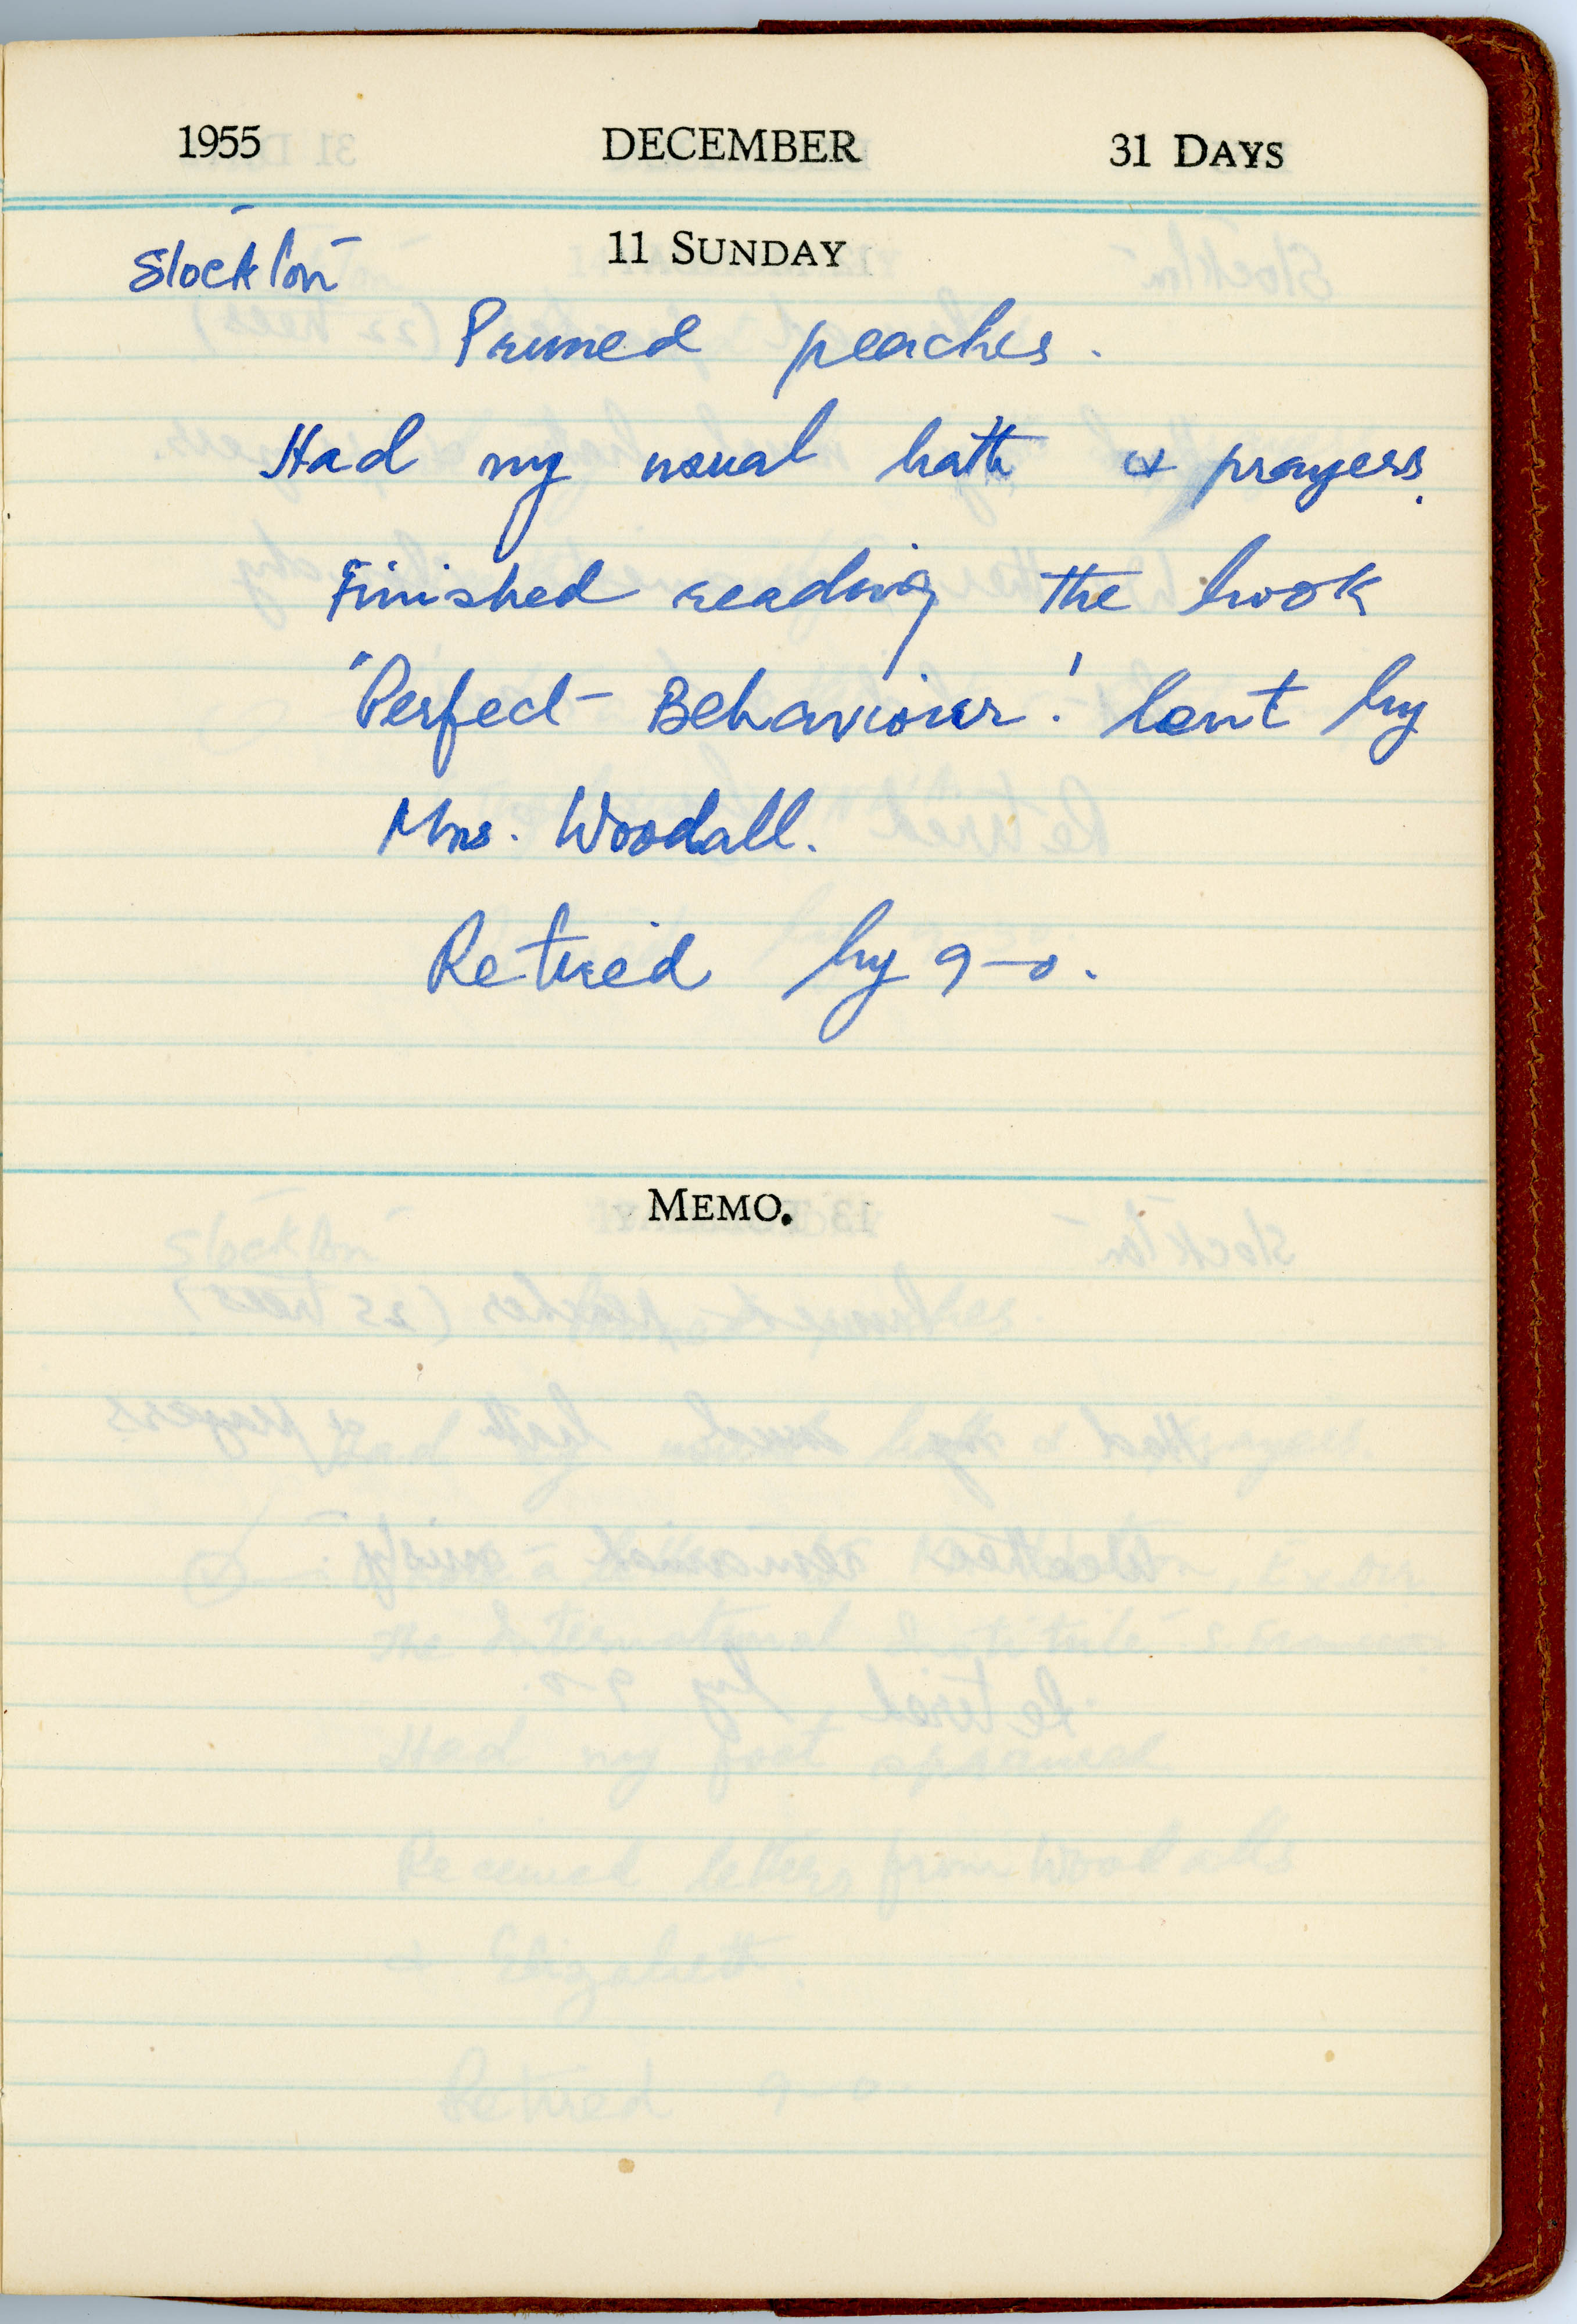 1955 DECEMBER 31 DAYS
11 SUNDAY
Stockton
Pruned peaches.
Had my usual bath & prayers.
Finished reading the book
"Perfect Behaviour". lent by
Mrs. Woodall.
Retired by 9-0.
MEMO.